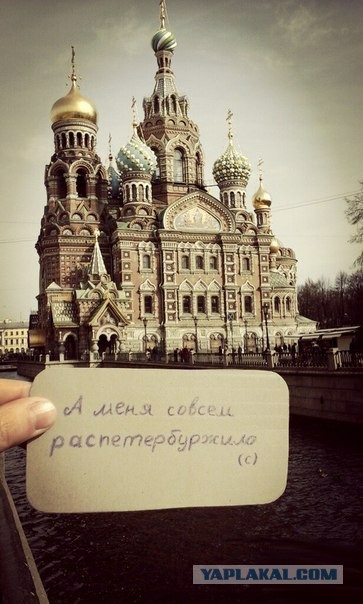 А меня совсем
распетербуржило
(с)
YAPLAKAL.COM